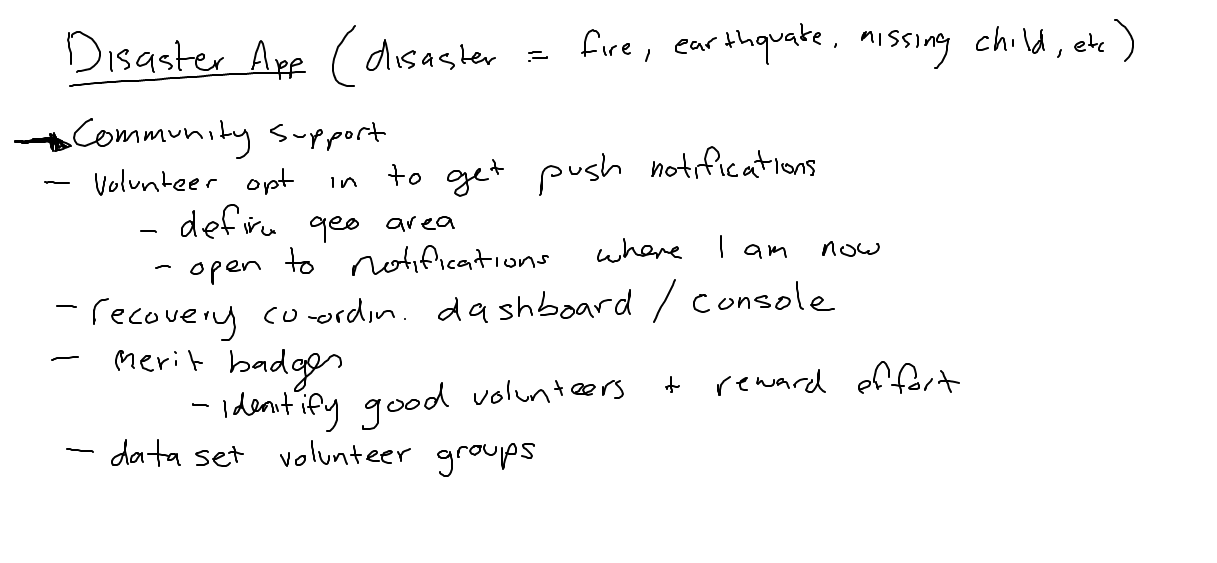 Disaster App (disaster = fire, earthquake, missing child, etc)
→ Community support
- Volunteer opt in to get push notifications
- define geo area
- open to notifications where I am now
- recovery co-ordin. dashboard / console
- Merit badges
- identify good volunteers + reward effort
- data set volunteer groups